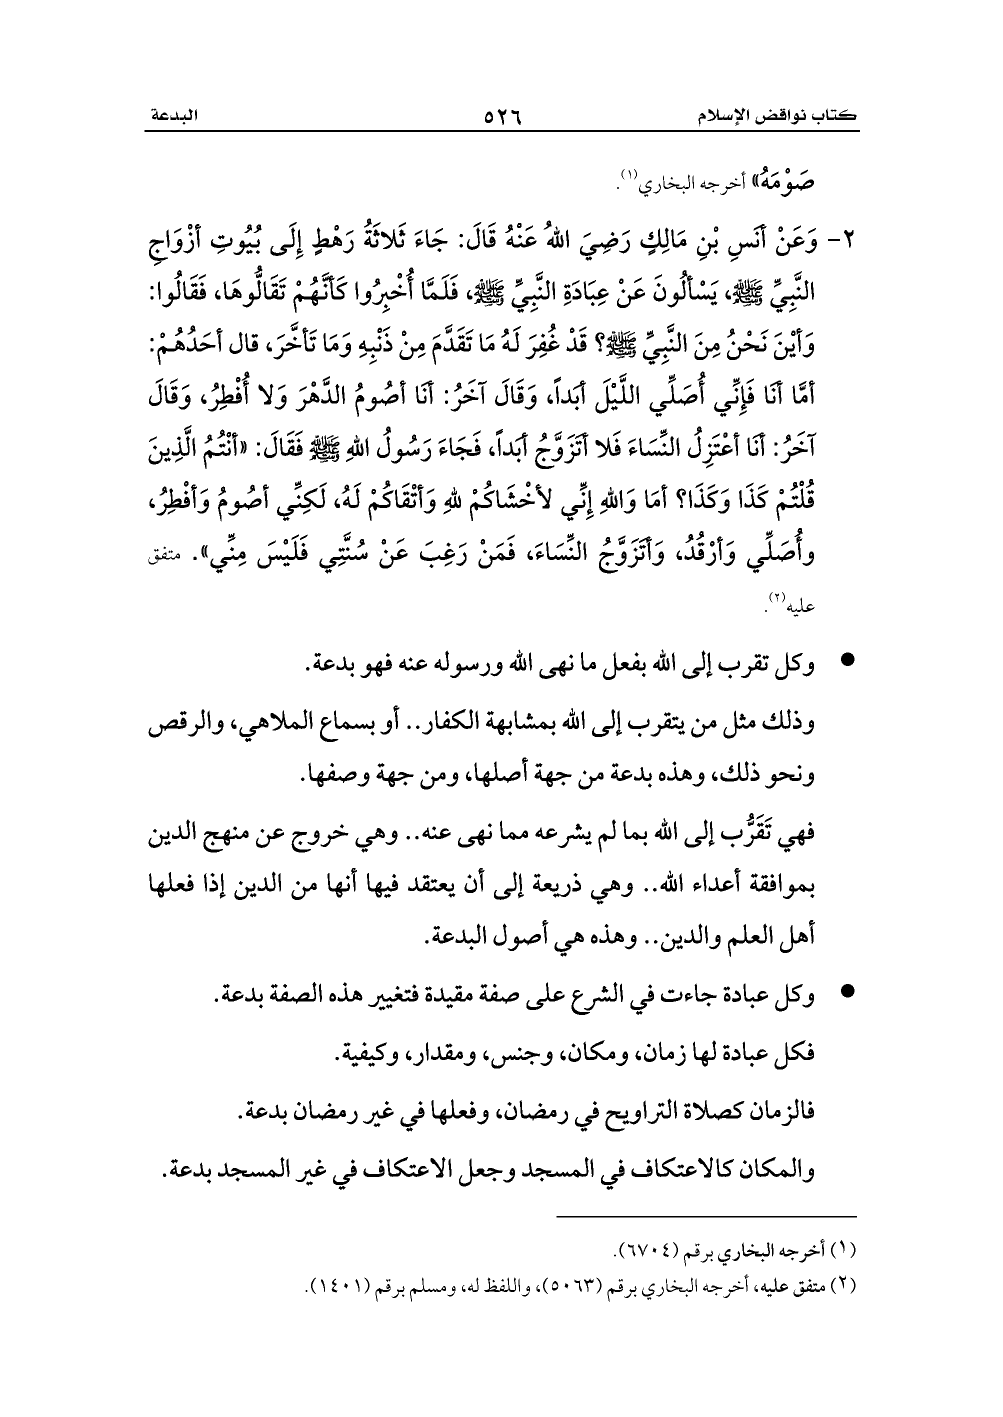 كتاب نواقض الإسلام ٥٢٦ البدعة
صَوْمَهُ» أخرجه البخاري(١).
٢- وَعَنْ أنَسِ بْنِ مَالِكٍ رَضِيَ اللهُ عَنْهُ قَالَ: جَاءَ ثَلاثَةُ رَهْطٍ إِلَى بُيُوتِ أزْوَاجِ
النَّبِيِّ ﷺ، يَسْألُونَ عَنْ عِبَادَةِ النَّبِيِّ ﷺ، فَلَمَّا أُخْبِرُوا كَأنَّهُمْ تَقَالُّوهَا، فَقَالُوا:
وَأيْنَ نَحْنُ مِنَ النَّبِيِّ ﷺ؟ قَدْ غُفِرَ لَهُ مَا تَقَدَّمَ مِنْ ذَنْبِهِ وَمَا تَأخَّرَ، قال أحَدُهُمْ:
أمَّا أنَا فَإِنِّي أُصَلِّي اللَّيْلَ أبَداً، وَقَالَ آخَرُ: أنَا أصُومُ الدَّهْرَ وَلا أُفْطِرُ، وَقَالَ
آخَرُ: أنَا أعْتَزِلُ النِّسَاءَ فَلا أتَزَوَّجُ أبَداً، فَجَاءَ رَسُولُ اللهِ ﷺ فَقَالَ: «أنْتُمُ الَّذِينَ
قُلْتُمْ كَذَا وَكَذَا؟ أمَا وَاللهِ إِنِّي لأخْشَاكُمْ للهِ وَأتْقَاكُمْ لَهُ، لَكِنِّي أصُومُ وَأفْطِرُ،
وأُصَلِّي وَأرْقُدُ، وَأتَزَوَّجُ النِّسَاءَ، فَمَنْ رَغِبَ عَنْ سُنَّتِي فَلَيْسَ مِنِّي». متفق
عليه(٢).
● وكل تقرب إلى الله بفعل ما نهى الله ورسوله عنه فهو بدعة.
وذلك مثل من يتقرب إلى الله بمشابهة الكفار.. أو بسماع الملاهي، والرقص
ونحو ذلك، وهذه بدعة من جهة أصلها، ومن جهة وصفها.
فهي تَقَرُّب إلى الله بما لم يشرعه مما نهى عنه.. وهي خروج عن منهج الدين
بموافقة أعداء الله.. وهي ذريعة إلى أن يعتقد فيها أنها من الدين إذا فعلها
أهل العلم والدين.. وهذه هي أصول البدعة.
● وكل عبادة جاءت في الشرع على صفة مقيدة فتغيير هذه الصفة بدعة.
فكل عبادة لها زمان، ومكان، وجنس، ومقدار، وكيفية.
فالزمان كصلاة التراويح في رمضان، وفعلها في غير رمضان بدعة.
والمكان كالاعتكاف في المسجد وجعل الاعتكاف في غير المسجد بدعة.
(١) أخرجه البخاري برقم (٦٧٠٤).
(٢) متفق عليه، أخرجه البخاري برقم (٥٠٦٣)، واللفظ له، ومسلم برقم (١٤٠١).